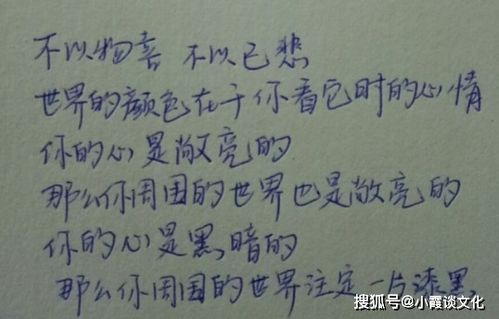 不以物喜 不以己悲
世界的颜色在于你看它时的心情
你的心是敞亮的
那么你周围的世界也是敞亮的
你的心是黑暗的
那么你周围的世界注定一片漆黑
搜狐号@小霞谈文化